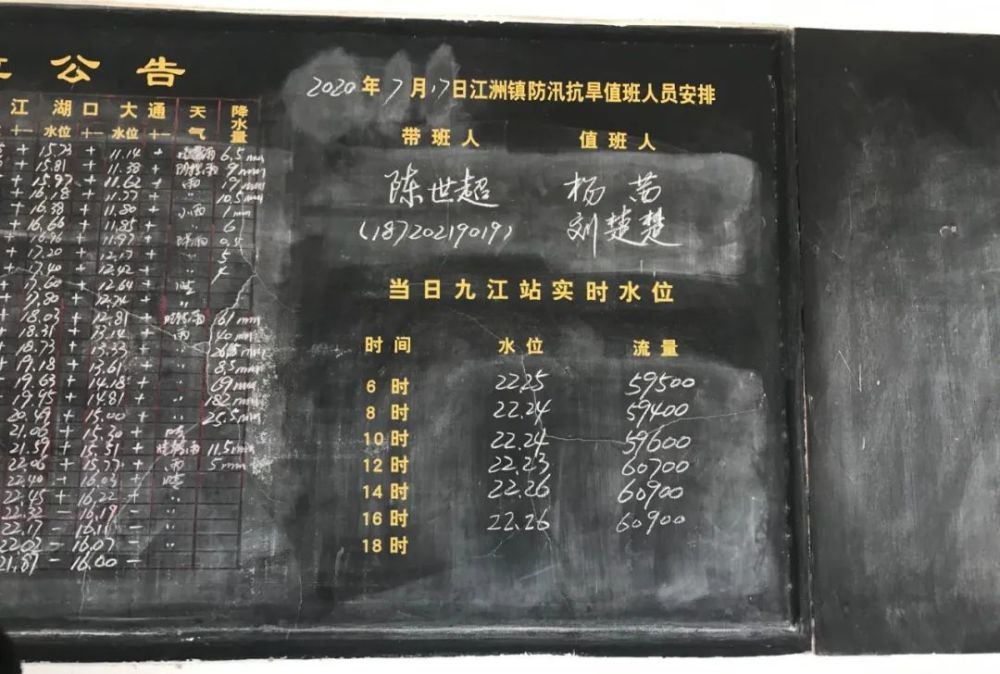 公告
江 湖口 大通 天气 降水量
十一 水位 十一 水位 十一
+ 15.73 + 11.14 + 6.5mm
+ 15.81 + 11.38 + 阴转雨 9mm
+ 15.97 + 11.62 + 雨 19mm
+ 16.18 + 11.77 + 〃 10.5mm
+ 16.38 + 11.80 + 小雨 1mm
+ 16.66 + 11.85 + 〃 6
+ 16.96 + 11.97 + 阵雨 0.5
+ 17.20 + 12.17 + 〃 5
+ 17.40 + 12.42 + 〃 4
+ 17.60 + 12.64 + 晴
+ 17.80 + 12.74 + 〃
+ 18.03 + 12.81 + 61mm
+ 18.31 + 13.14 + 雨 40mm
+ 18.73 + 13.33 + 〃
+ 19.18 + 13.61 + 〃 8.5mm
- 19.63 + 14.18 + 〃 69mm
- 19.95 + 14.81 + 〃 182mm
20.49 + 15.00 + 〃 25.5mm
21.03 + 15.30 + 晴
21.59 + 15.51 + 11.5mm
22.06 + 15.77 + 雨 5mm
22.40 + 16.03 + 晴
22.45 + 16.22 + 〃
22.32 - 16.19 - 〃
22.17 - 16.11 - 〃
22.02 - 16.07 - 〃
21.87 - 16.00 -
2020年7月17日江洲镇防汛抗旱值班人员安排
带班人 值班人
陈世超 杨茜
(18720219019) 刘楚楚
当日九江站实时水位
时间 水位 流量
6时 22.25 59500
8时 22.24 59400
10时 22.24 59600
12时 22.23 60700
14时 22.26 60900
16时 22.26 60900
18时